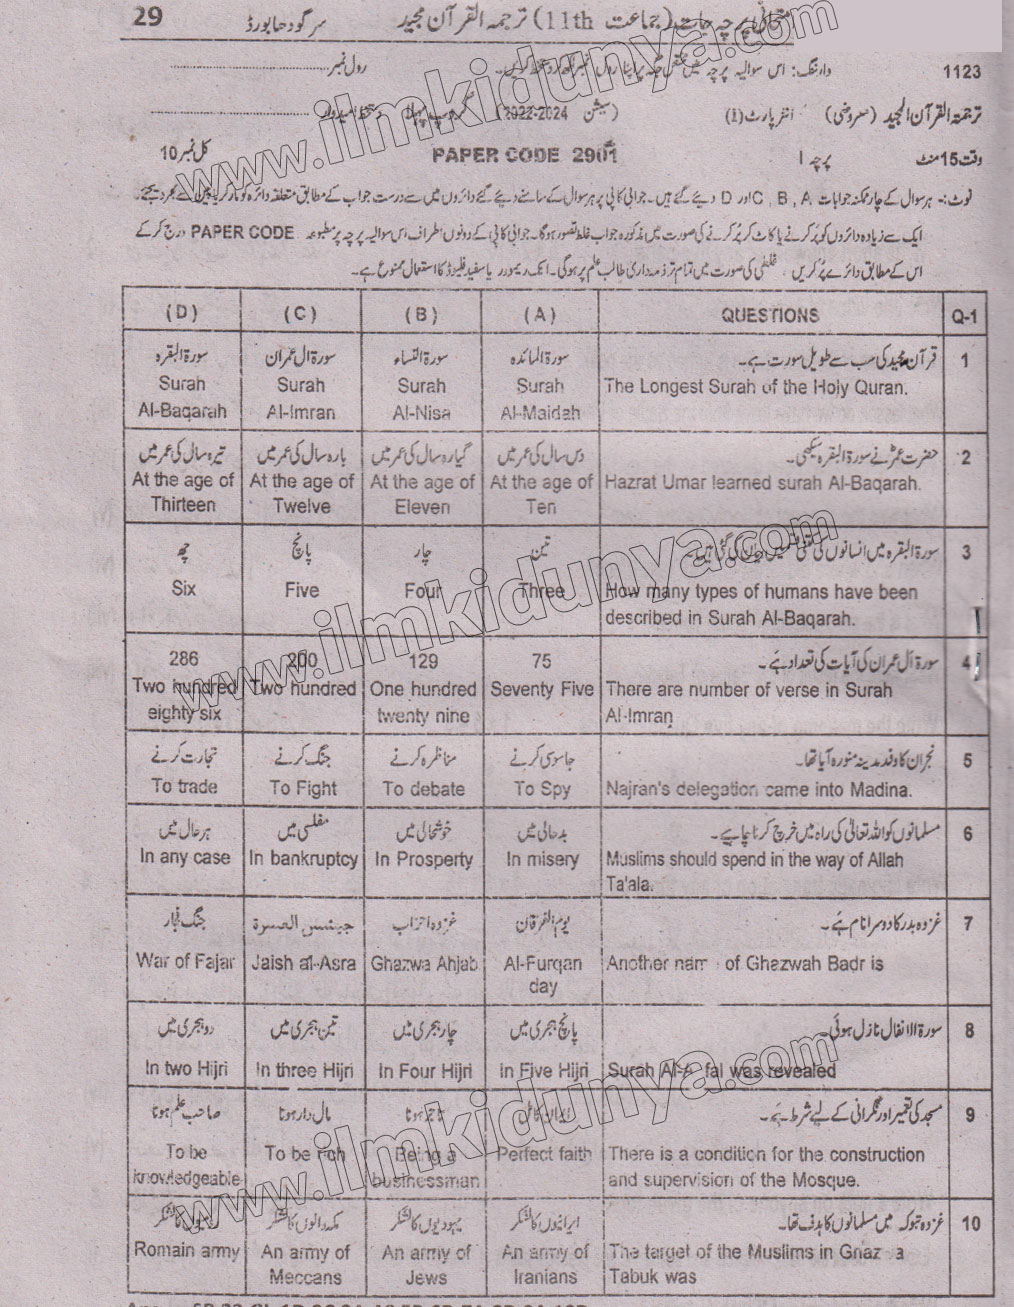 29
سرگودھا بورڈ
ترجمۃ القرآن مجید (جماعت 11th)
1123
وارننگ: اس سوالیہ پرچہ پر اپنا رول نمبر
رول نمبر
ترجمۃ القرآن المجید (معروضی) انٹر پارٹ (I) (سیشن 2022-2024) گروپ پہلا
وقت 15 منٹ پرچہ I PAPER CODE 2901 کل نمبر 10
نوٹ:- ہر سوال کے چار ممکنہ جوابات A , B , C اور D دیئے گئے ہیں۔ جوابی کاپی پر ہر سوال کے سامنے دیئے گئے دائروں میں سے درست جواب کے مطابق متعلقہ دائرہ کو مارکر یا پین سے بھر دیجئے۔
ایک سے زیادہ دائروں کو پُر کرنے یا کاٹ کر پُر کرنے کی صورت میں مذکورہ جواب غلط تصور ہوگا۔ جوابی کاپی کے دونوں اطراف اس سوالیہ پرچہ پر مطبوعہ PAPER CODE درج کر کے
اس کے مطابق دائرے پُر کریں، غلطی کی صورت میں تمام تر ذمہ داری طالب علم پر ہوگی۔ انک ریموور یا سفید فلیوڈ کا استعمال ممنوع ہے۔
(D) (C) (B) (A) QUESTIONS Q-1
سورۃ البقرہ سورۃ ال عمران سورۃ النساء سورۃ المائدہ قرآن مجید کی سب سے طویل سورت ہے۔ 1
Surah Surah Surah Surah The Longest Surah of the Holy Quran.
Al-Baqarah Al-Imran Al-Nisa Al-Maidah
تیرہ سال کی عمر میں بارہ سال کی عمر میں گیارہ سال کی عمر میں دس سال کی عمر میں حضرت عمرؓ نے سورۃ البقرہ سیکھی۔ 2
At the age of At the age of At the age of At the age of Hazrat Umar learned surah Al-Baqarah.
Thirteen Twelve Eleven Ten
چھ پانچ چار تین سورۃ البقرہ میں انسانوں کی کتنی قسمیں بیان کی گئی ہیں۔ 3
Six Five Four Three How many types of humans have been
described in Surah Al-Baqarah.
286 200 129 75 سورۃ اٰل عمران کی آیات کی تعداد ہے۔ 4
Two hundred Two hundred One hundred Seventy Five There are number of verse in Surah
eighty six twenty nine Al-Imran
تجارت کرنے جنگ کرنے مناظرہ کرنے جاسوسی کرنے نجران کا وفد مدینہ منورہ آیا تھا۔ 5
To trade To Fight To debate To Spy Najran's delegation came into Madina.
ہر حال میں مفلسی میں خوشحالی میں بدحالی میں مسلمانوں کو اللہ تعالیٰ کی راہ میں خرچ کرنا چاہیے۔ 6
In any case In bankruptcy In Prosperty In misery Muslims should spend in the way of Allah
Ta'ala.
جنگ فجار جیش العسرۃ غزوہ احزاب یوم الفرقان غزوہ بدر کا دوسرا نام ہے۔ 7
War of Fajar Jaish al-Asra Ghazwa Ahjab Al-Furqan Another nam of Ghazwah Badr is
day
دو ہجری میں تین ہجری میں چار ہجری میں پانچ ہجری میں سورۃ الانفال نازل ہوئی۔ 8
In two Hijri In three Hijri In Four Hijri In Five Hijri Surah Al- fal was revealed
صاحب علم ہونا مال دار ہونا تاجر ہونا ایمان کامل مسجد کی تعمیر اور نگرانی کے لیے شرط ہے۔ 9
To be To be rich Being a Perfect faith There is a condition for the construction
knowledgeable businessman and supervision of the Mosque.
رومیوں کا لشکر مکہ والوں کا لشکر یہودیوں کا لشکر ایرانیوں کا لشکر غزوہ تبوک میں مسلمانوں کا ہدف تھا۔ 10
Romain army An army of An army of An army of The target of the Muslims in Ghaz a
Meccans Jews Iranians Tabuk was
www.ilmkidunya.com
www.ilmkidunya.com
www.ilmkidunya.com